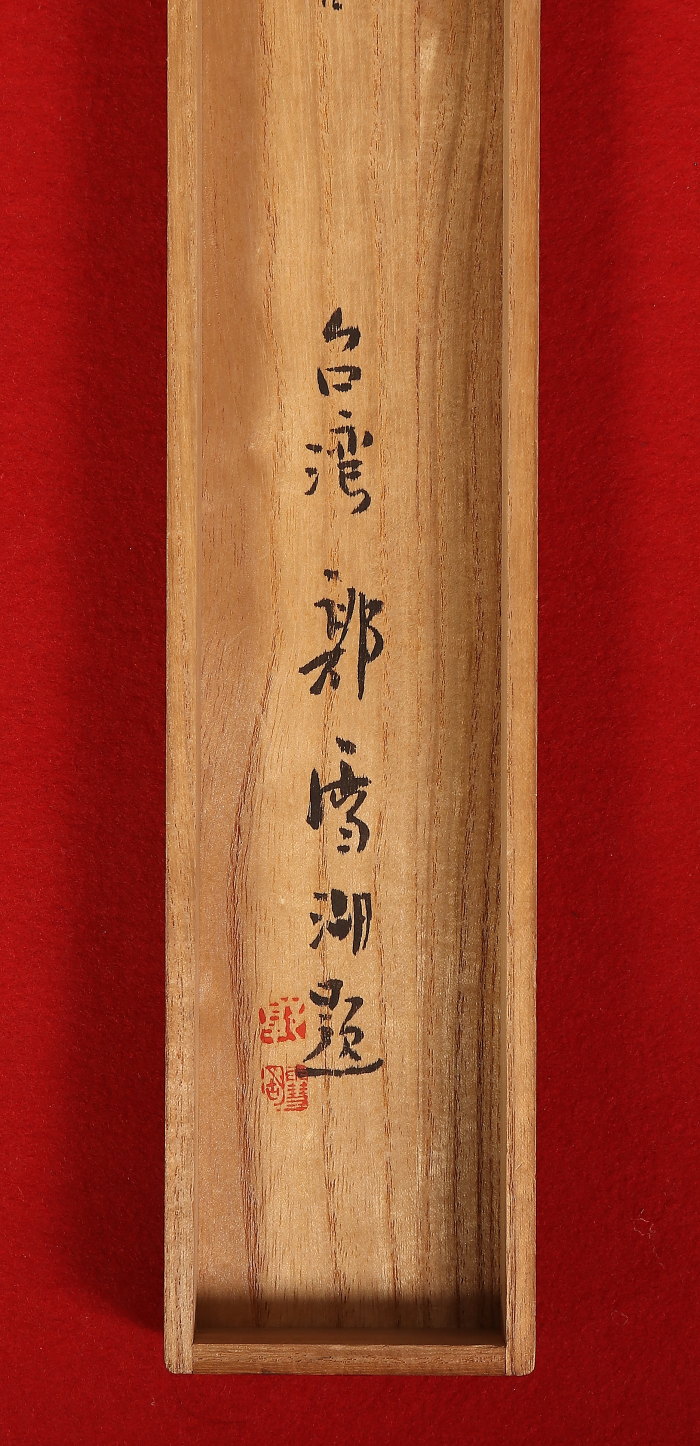 台湾 郭雪湖題